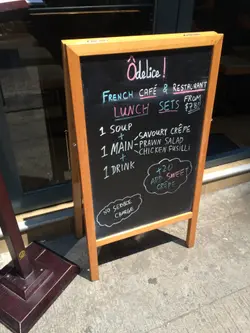 Ôdelice!
FRENCH CAFÉ & RESTAURANT
LUNCH SETS FROM
1 SOUP
+
1 MAIN - SAVOURY CRÊPE
PRAWN SALAD
CHICKEN FUSILLI
+
1 DRINK
+20
ADD SWEET
CRÊPE
NO SERVICE
CHARGE